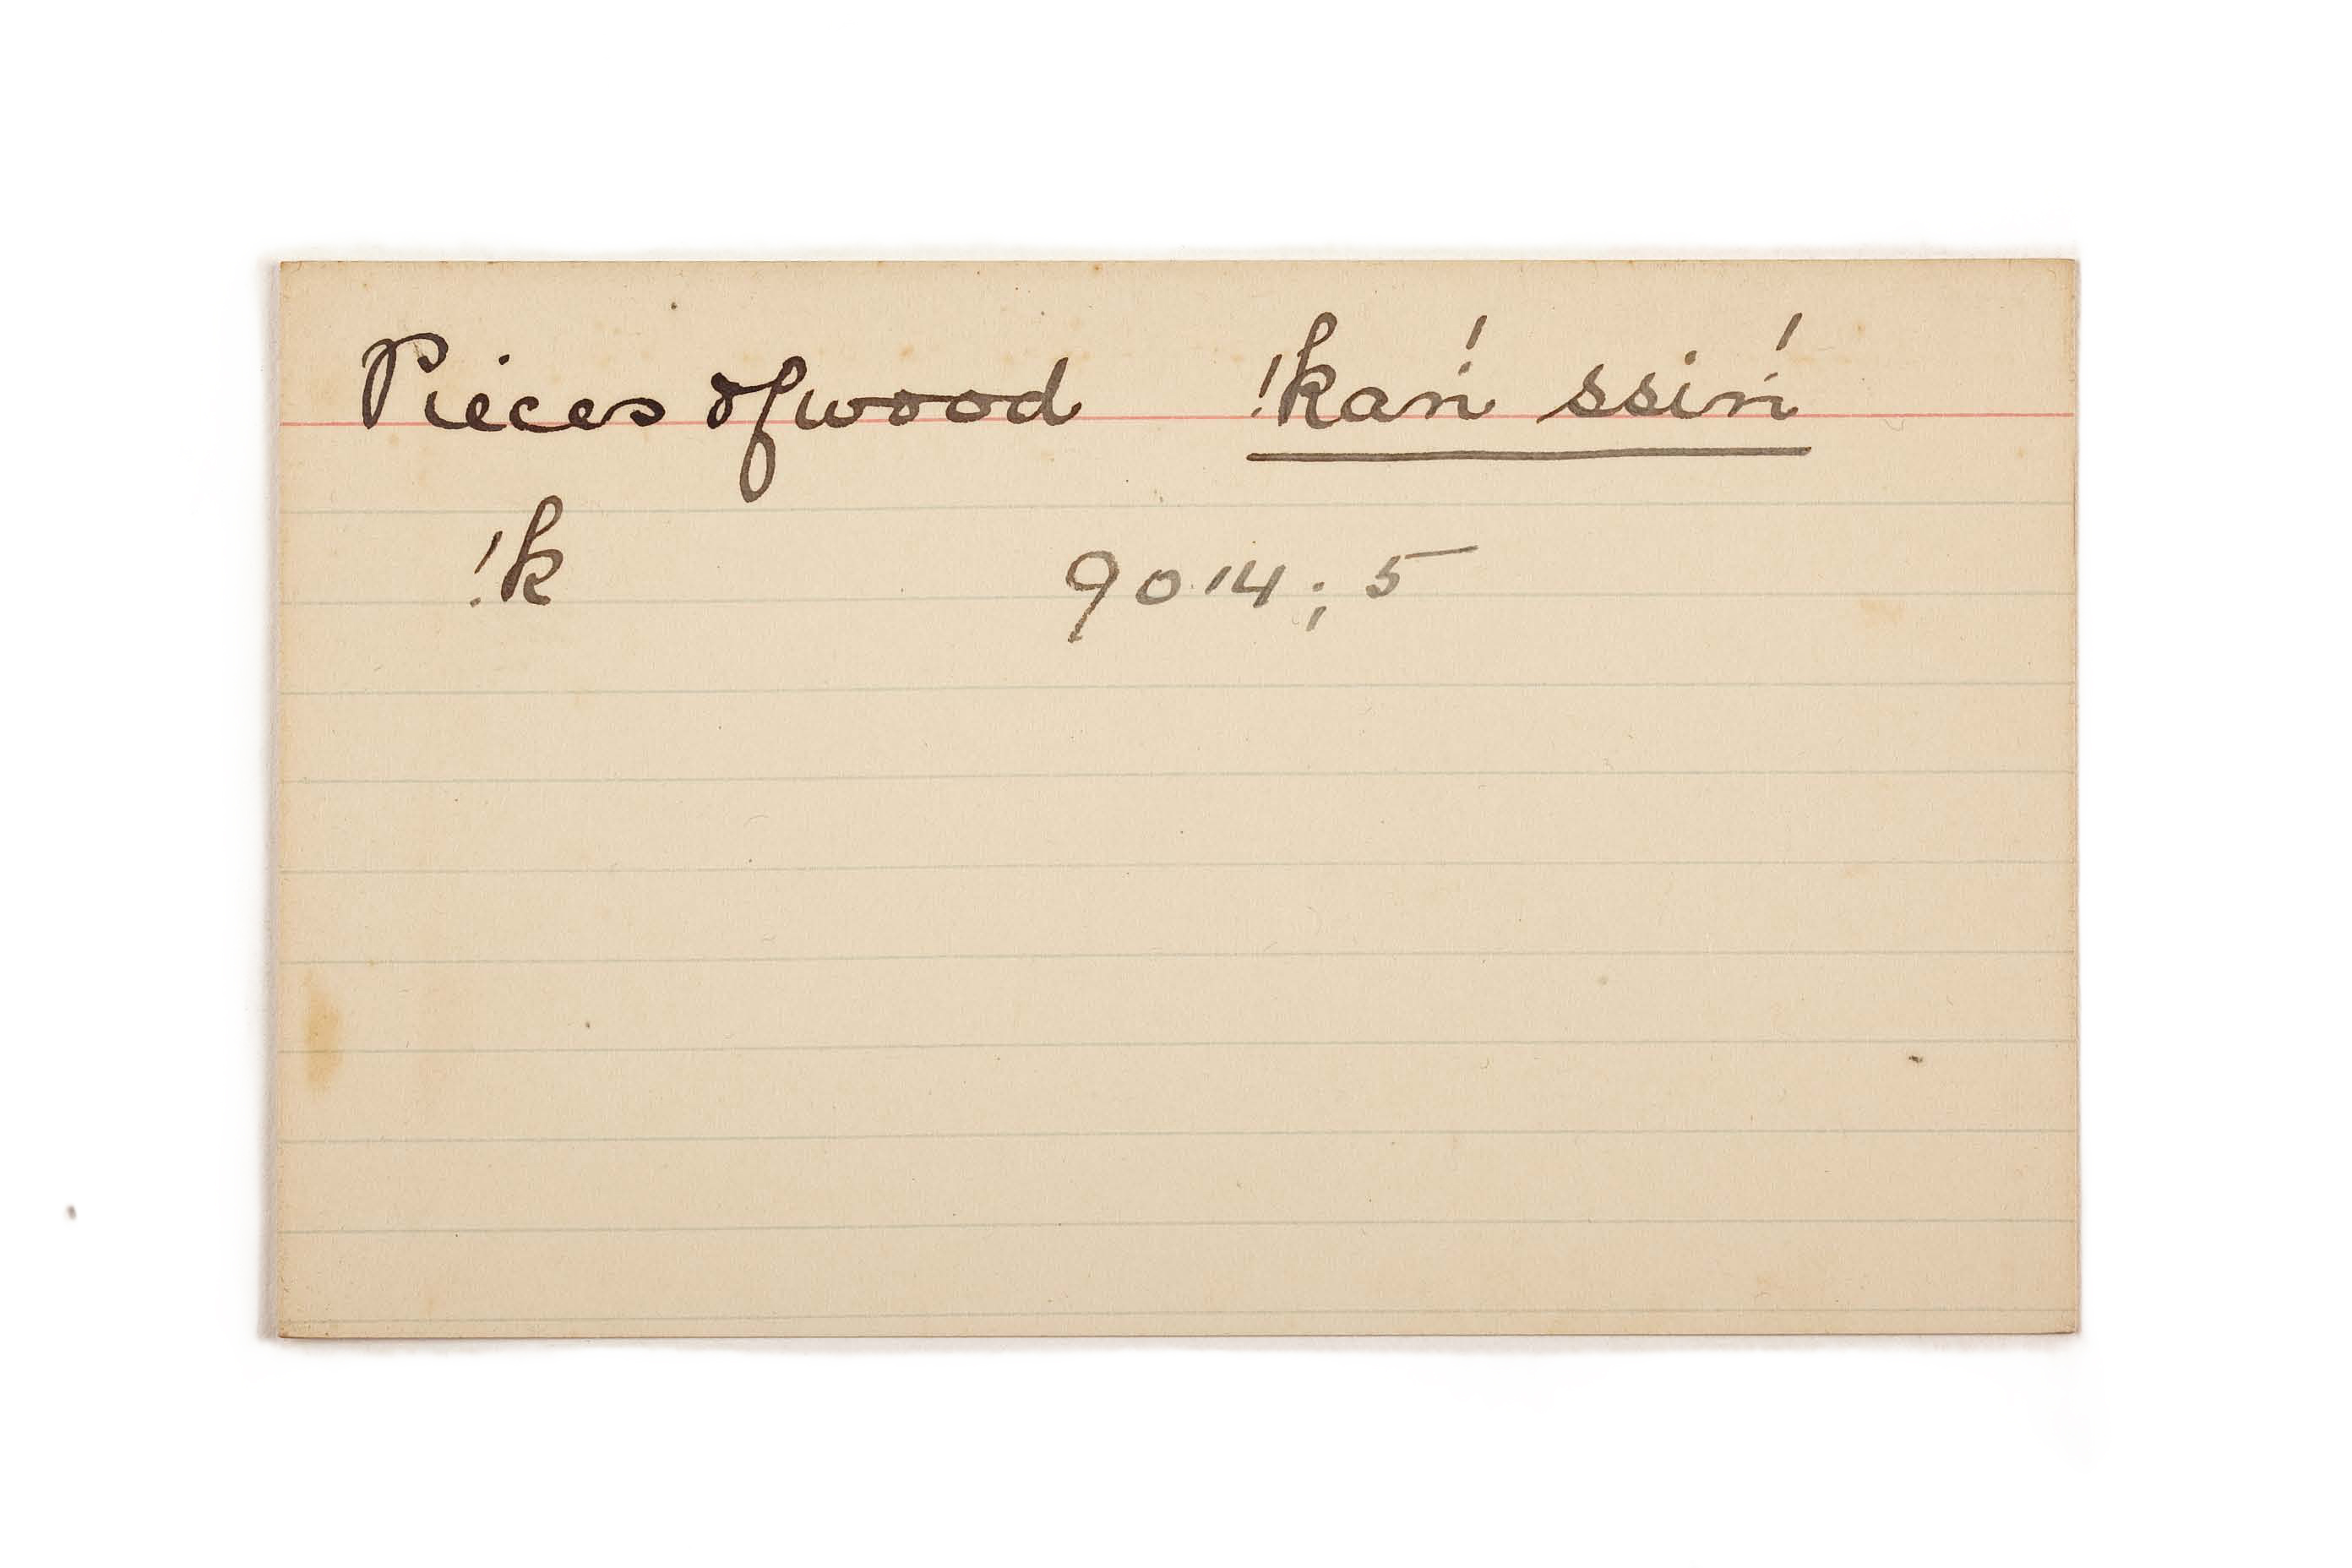 Pieces of wood !kaṅ́ ssiṅ́
!k 9014; 5